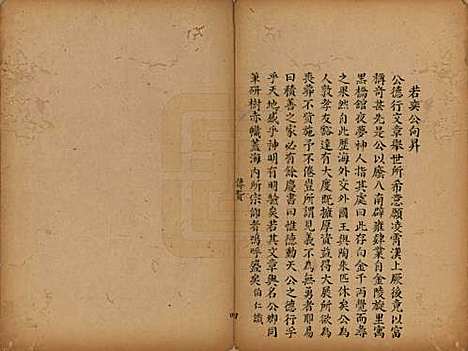 若奕公向昇
公德行文章舉世所希意願凌霄漢上厥後竟以富
稱奇甚先是公以廩八南辟雍肄業自金陵旋里寓
黑橋館夜夢神人指其處曰此存向金千丙覺而尋
之果然自此歷海外交外國王與陶朱匹休矣公為
人敦孝友豁達有大度旣擁厚資益得大展所欲為
喪葬不貲施予不倦豈所謂見義不為無勇者耶易
曰積善之家必有餘慶書曰惟德動天公之德行乎
乎天地感乎神明有明驗矣若其文章與名公卿同
筆研樹赤幟蓋海內所宗師者嗚呼盛矣伯仁識
傳贊
四